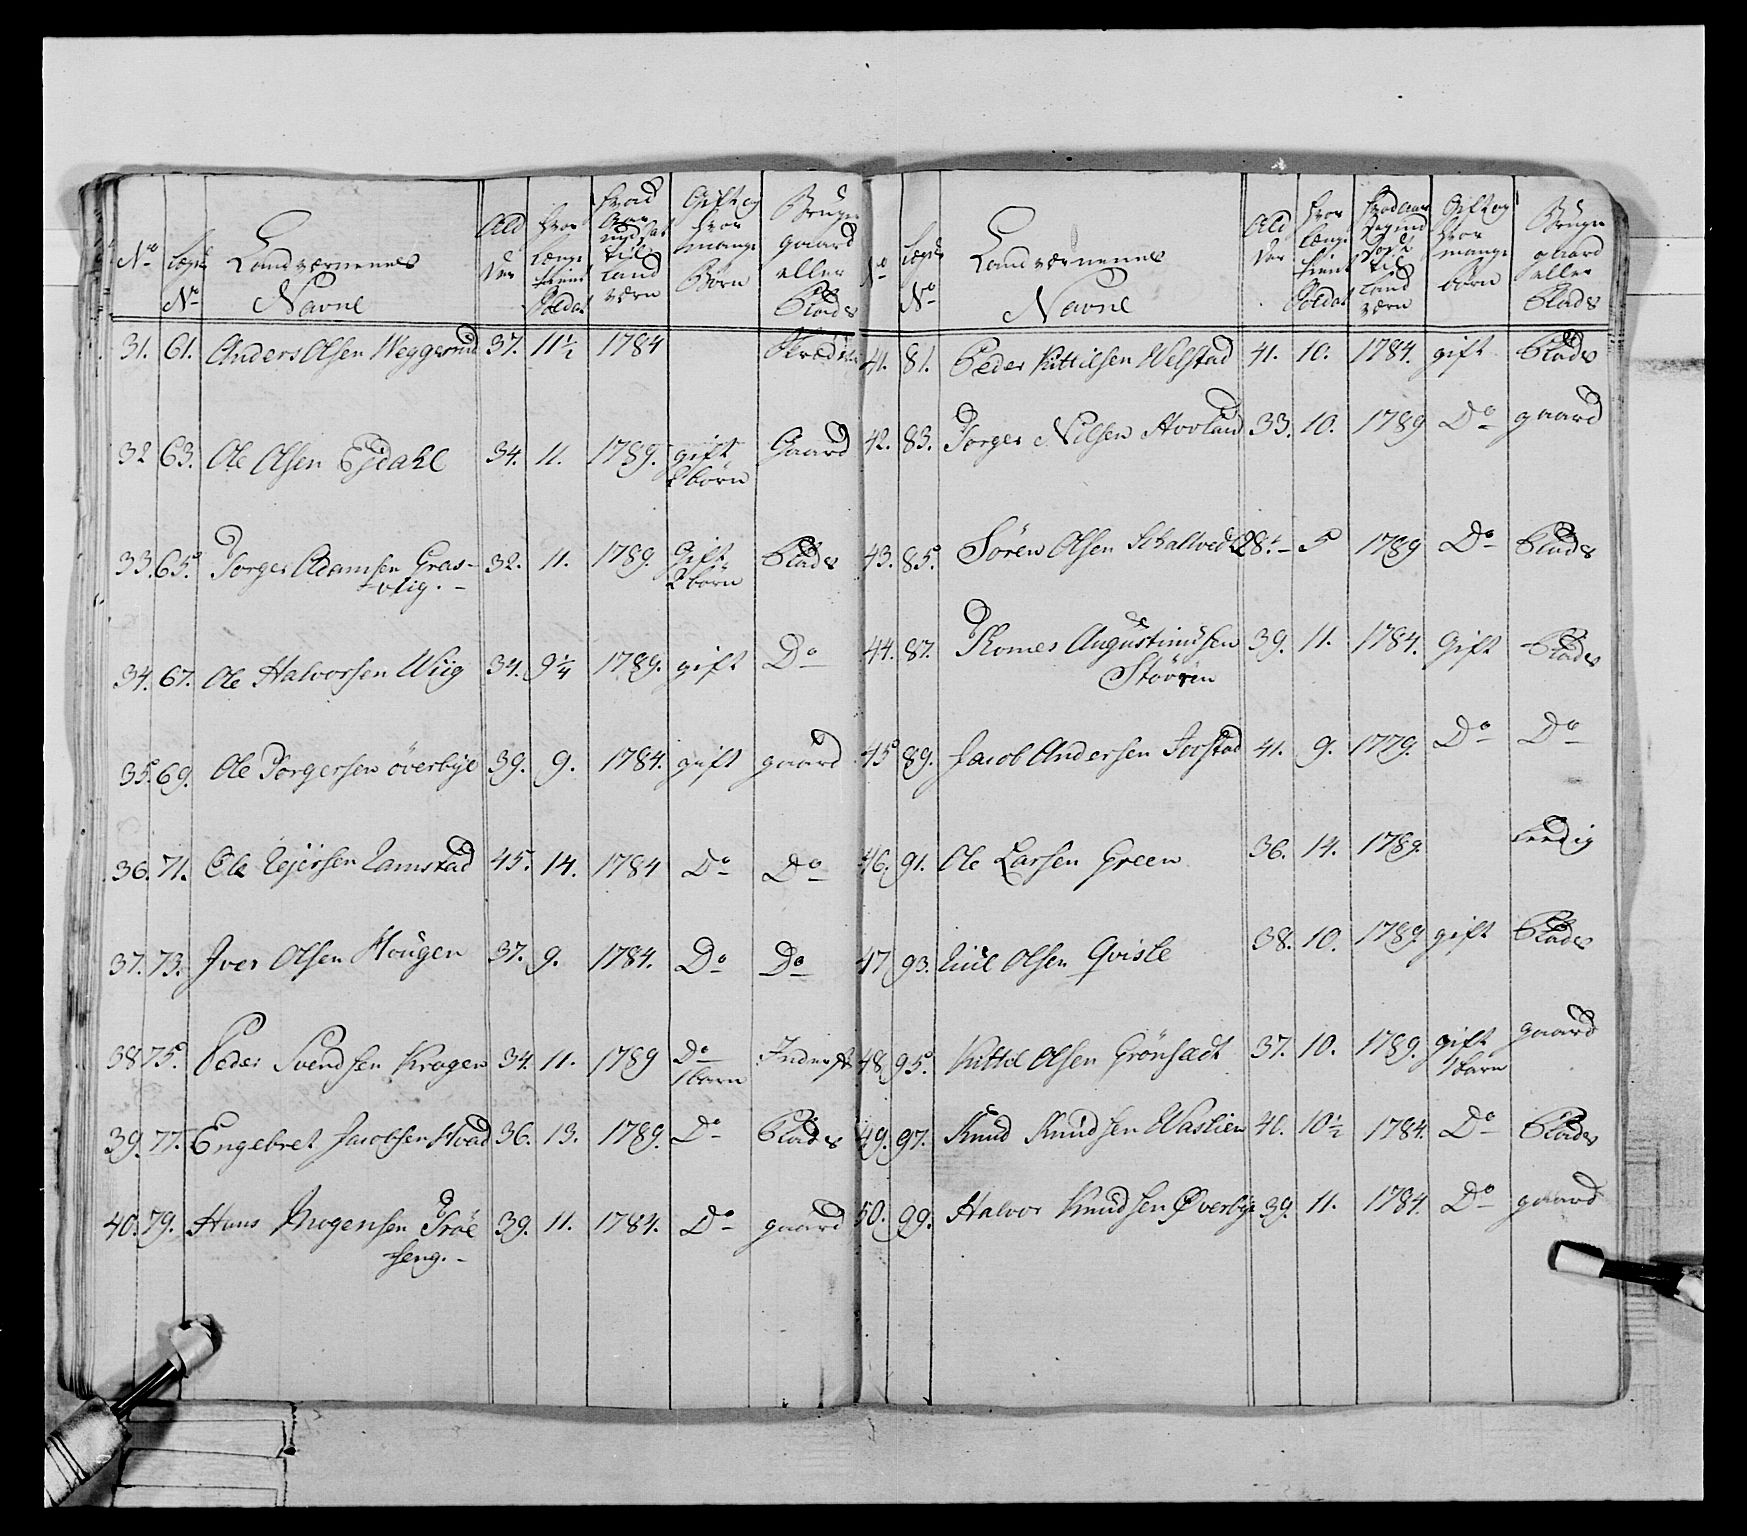 No Lægds No Landværnenes Navne Alder Hvor længe tient Soldat Hvad Aar indsat til Land værn Gift og hvor mange Børn Bruger gaard eller Plads
31. 61. Anders Olsen Heggerud 37. 11½ 1784
32 63. Ole Olsen Egdahl 34. 11. 1789. gift Gaard
2 børn
33. 65. Torger Adamsen Gras- 32. 11. 1789. Gift Plads
-vlig. - 2 børn
34. 67. Ole Halvorsen Wiig 34. 9¼ 1789. gift Do
35. 69. Ole Torgersen överbye 39. 9. 1784. gift gaard
36. 71. Ole Rejersen Ramstad 45. 14. 1784 Do Do
37. 73. Iver Olsen Hougen 37. 9. 1784. Do Do
38 75. Peder Svendsen Krogen 34. 11. 1789 Do Inderst
1 barn
39. 77. Engebret Jacobsen Hvad 36. 13. 1789. Do Plads
40. 79. Hans Mogensen Tröe 39. 11. 1784. Do gaard
seng. -
No Lægds No Landværnenes Navne Alder Hvor længe tient Soldat Hvad Aar til Land værn Gift og hvor mange børn Bruger gaard eller Plads
41. 81. Peder Kittilsen Velstad 41. 10. 1784. gift Plads
42. 83. Torger Nilsen Hovland 33. 10. 1789 Do gaard
43. 85. Sören Olsen 28. - 5 1789 Do Plads
44. 87. Thomes Augustinusen 39. 11. 1784. Gift Plads
Stövren
45 89. Jacob Andersen Jorstad 41. 9. 1779. Do Do
46. 91. Ole Larsen Green 36. 14. 1789. Ledig
47 93. Juul Olsen Qvisle 38. 10. 1789. gift Plads
48. 95. Kittel Olsen Grönsadt 37. 10. 1789. gift gaard
1 barn
49. 97. Knud Knudsen Haslien 40. 10½ 1784. Do Plads
50. 99. Halvor Knudsen Øverbye 39. 11. 1784. Do gaard